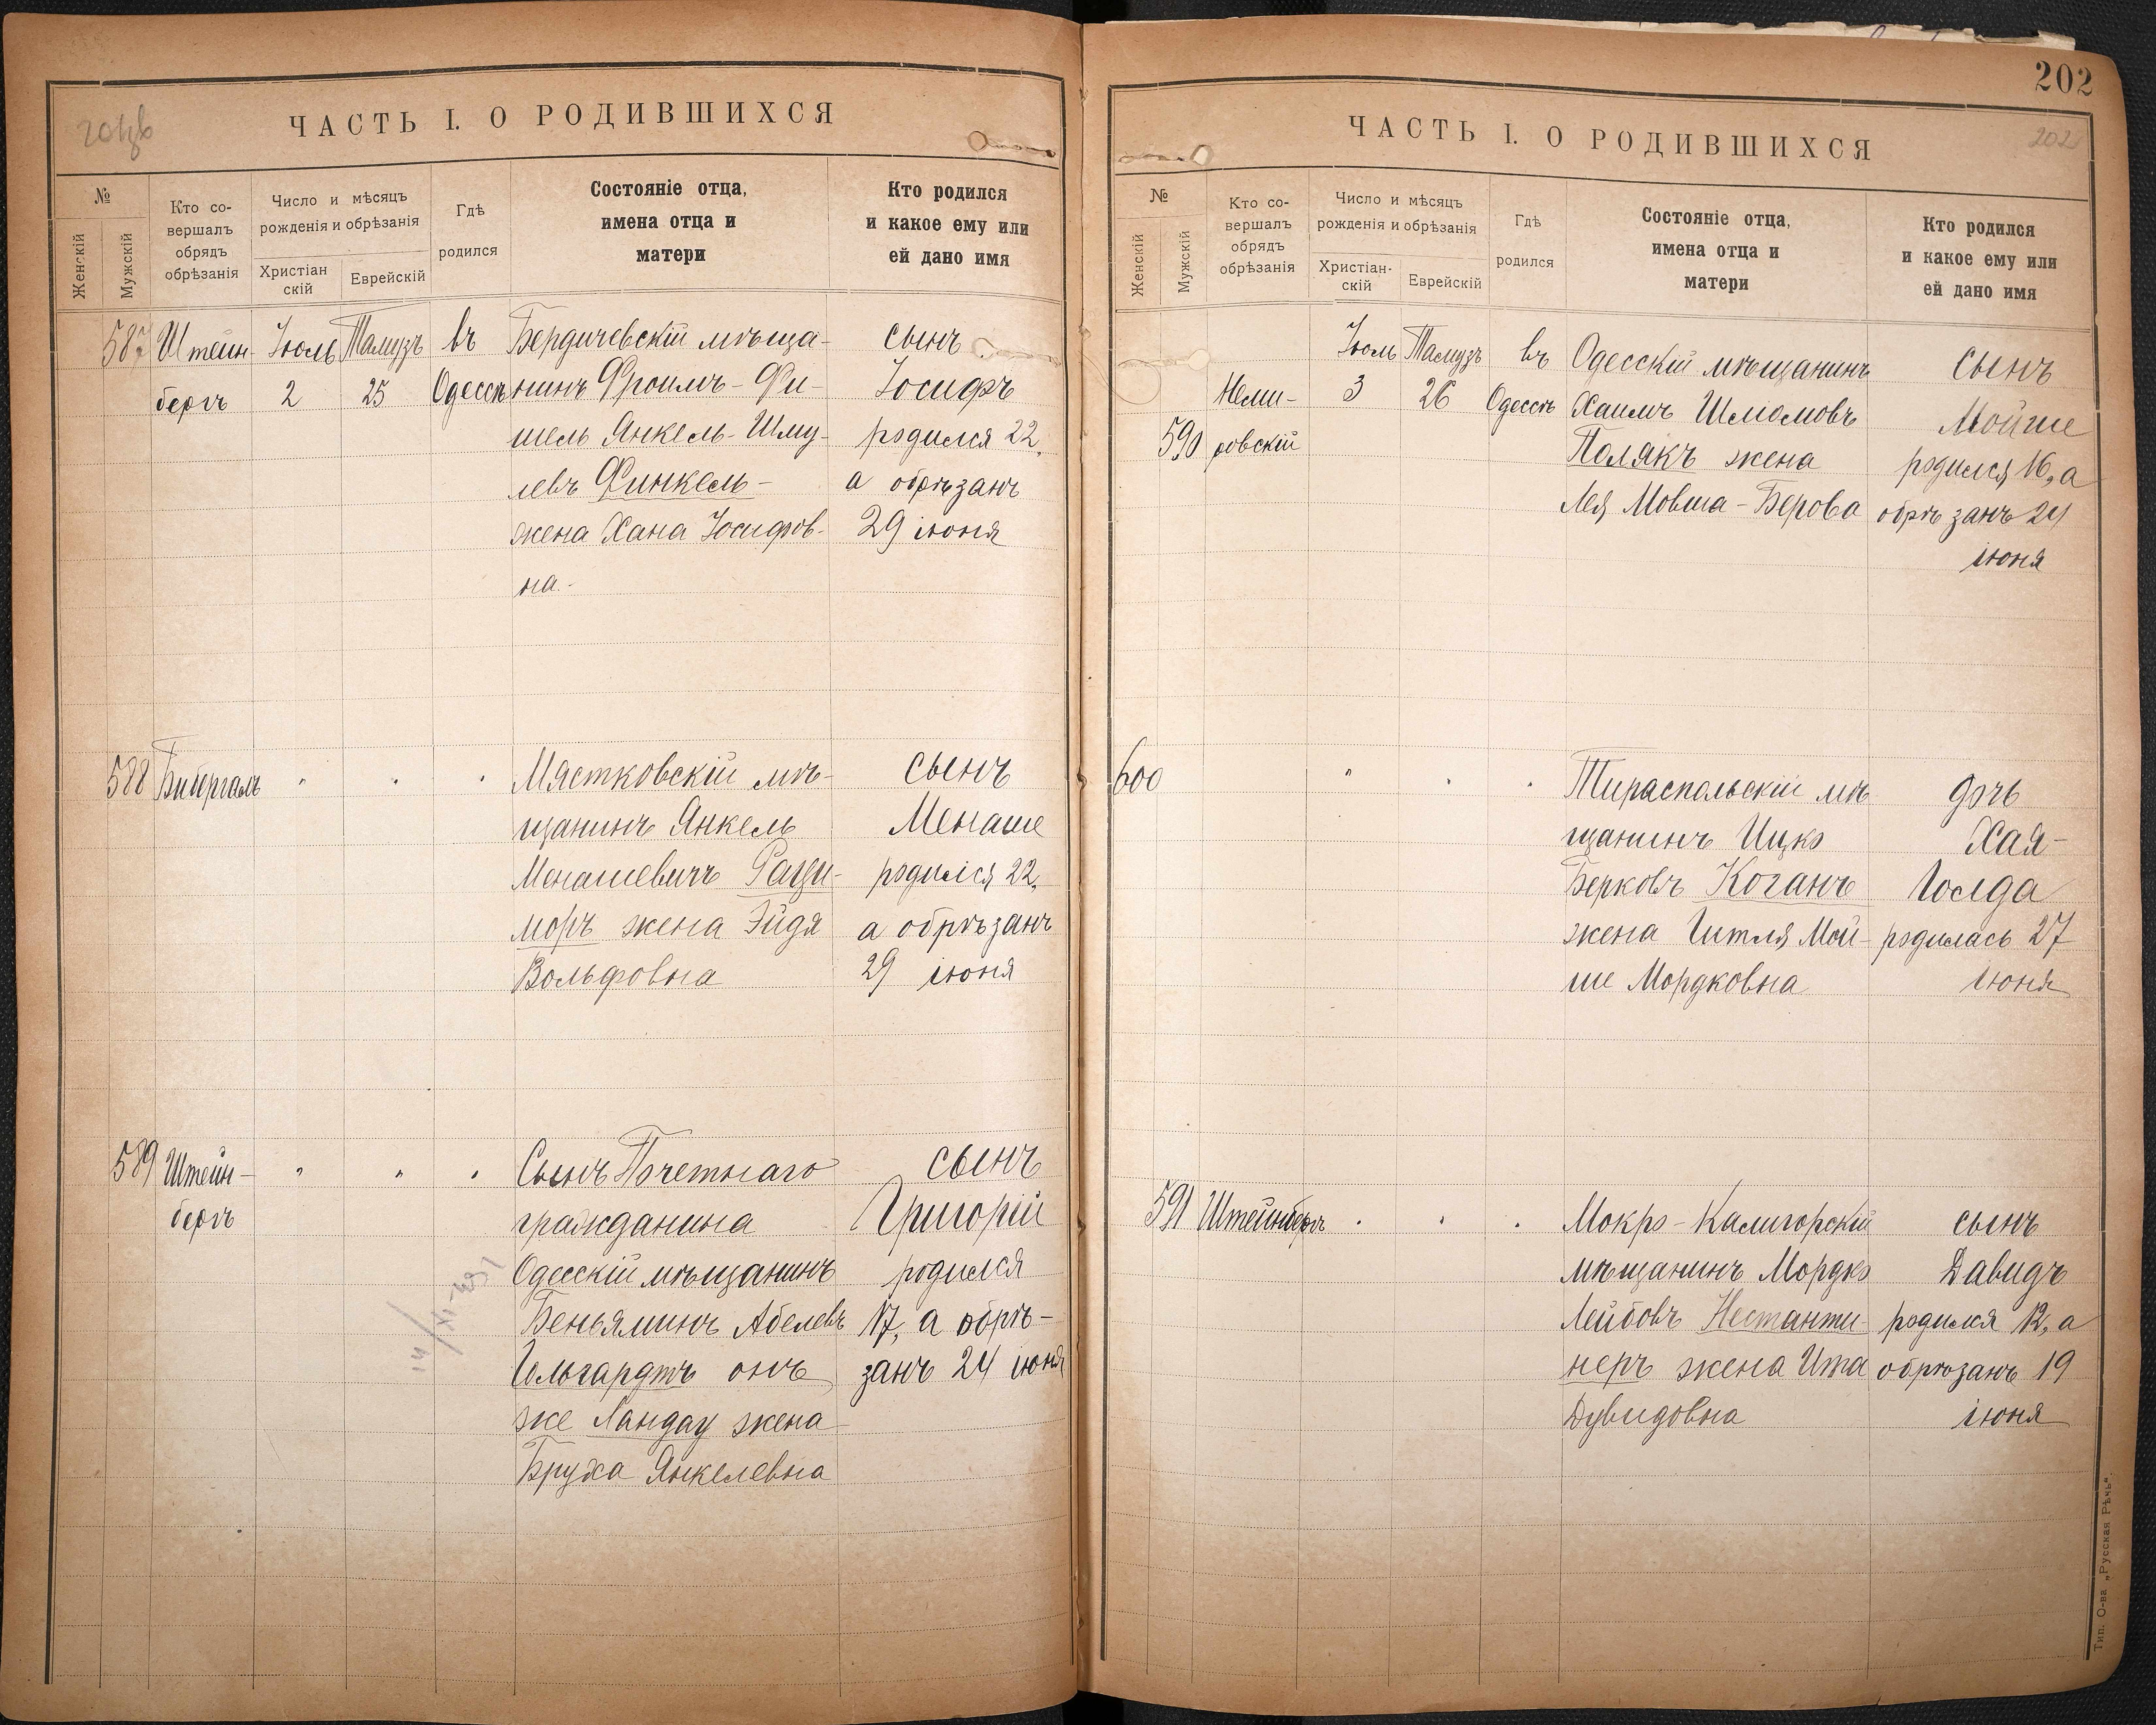 ЧАСТЬ I. О РОДИВШИХСЯ
№
Женскій
Мужскій
Кто со-
вершалъ
обрядъ
обрѣзанія
Число и мѣсяцъ
рожденія и обрѣзанія
Христіан
скій
Еврейскій
Гдѣ
родился
Состояніе отца,
имена отца и
матери
Кто родился
и какое ему или
ей дано имя
587 Штейн- Іюль Тамузъ въ Бердичевскій мѣща- сынъ
бергъ 2 25 Одессѣ нинъ Фроимъ-Фи- Іосифъ
шель Янкель-Шму- родился 22,
левъ Финкель- а обрѣзанъ
жена Хана Іосифов- 29 іюня
на.
588 Бибергалъ " " " Мястковскій мѣ- сынъ
щанинъ Янкель Менаше
Менашевичъ Раци- родился 22,
моръ жена Эйдя а обрѣзанъ
Вольфовна 29 іюня
589 Штейн- " " " Сынъ Почетнаго сынъ
бергъ гражданина Григорій
Одесскій мѣщанинъ родился
Беньяминъ Абелевъ 17, а обрѣ-
Гельгардтъ онъ занъ 24 іюня
же Ландау жена
Бруха Янкелевна
202
ЧАСТЬ I. О РОДИВШИХСЯ
202
№
Женскій
Мужскій
Кто со-
вершалъ
обрядъ
обрѣзанія
Число и мѣсяцъ
рожденія и обрѣзанія
Христіан-
скій
Еврейскій
Гдѣ
родился
Состояніе отца,
имена отца и
матери
Кто родился
и какое ему или
ей дано имя
Іюль Тамузъ въ Одесскій мѣщанинъ сынъ
Неми- 3 26 Одессѣ Хаимъ Шлiомовъ Мойше
590 ровскій Полякъ жена родился 16, а
Лея Мовша-Берова обрѣзанъ 24
іюня
600 " " " Тираспольскій мѣ- дочь
щанинъ Ицко Хая-
Берковъ Коганъ Голда
жена Гитля Мой- родилась 27
ше Мордковна іюня
591 Штейнбергъ " " " Мокро-Калигорскій сынъ
мѣщанинъ Мордко Давидъ
Лейбовъ Нестанти- родился 12, а
неръ жена Ита обрѣзанъ 19
Дувидовна іюня
Тип. О-ва „Русская Рѣчь".